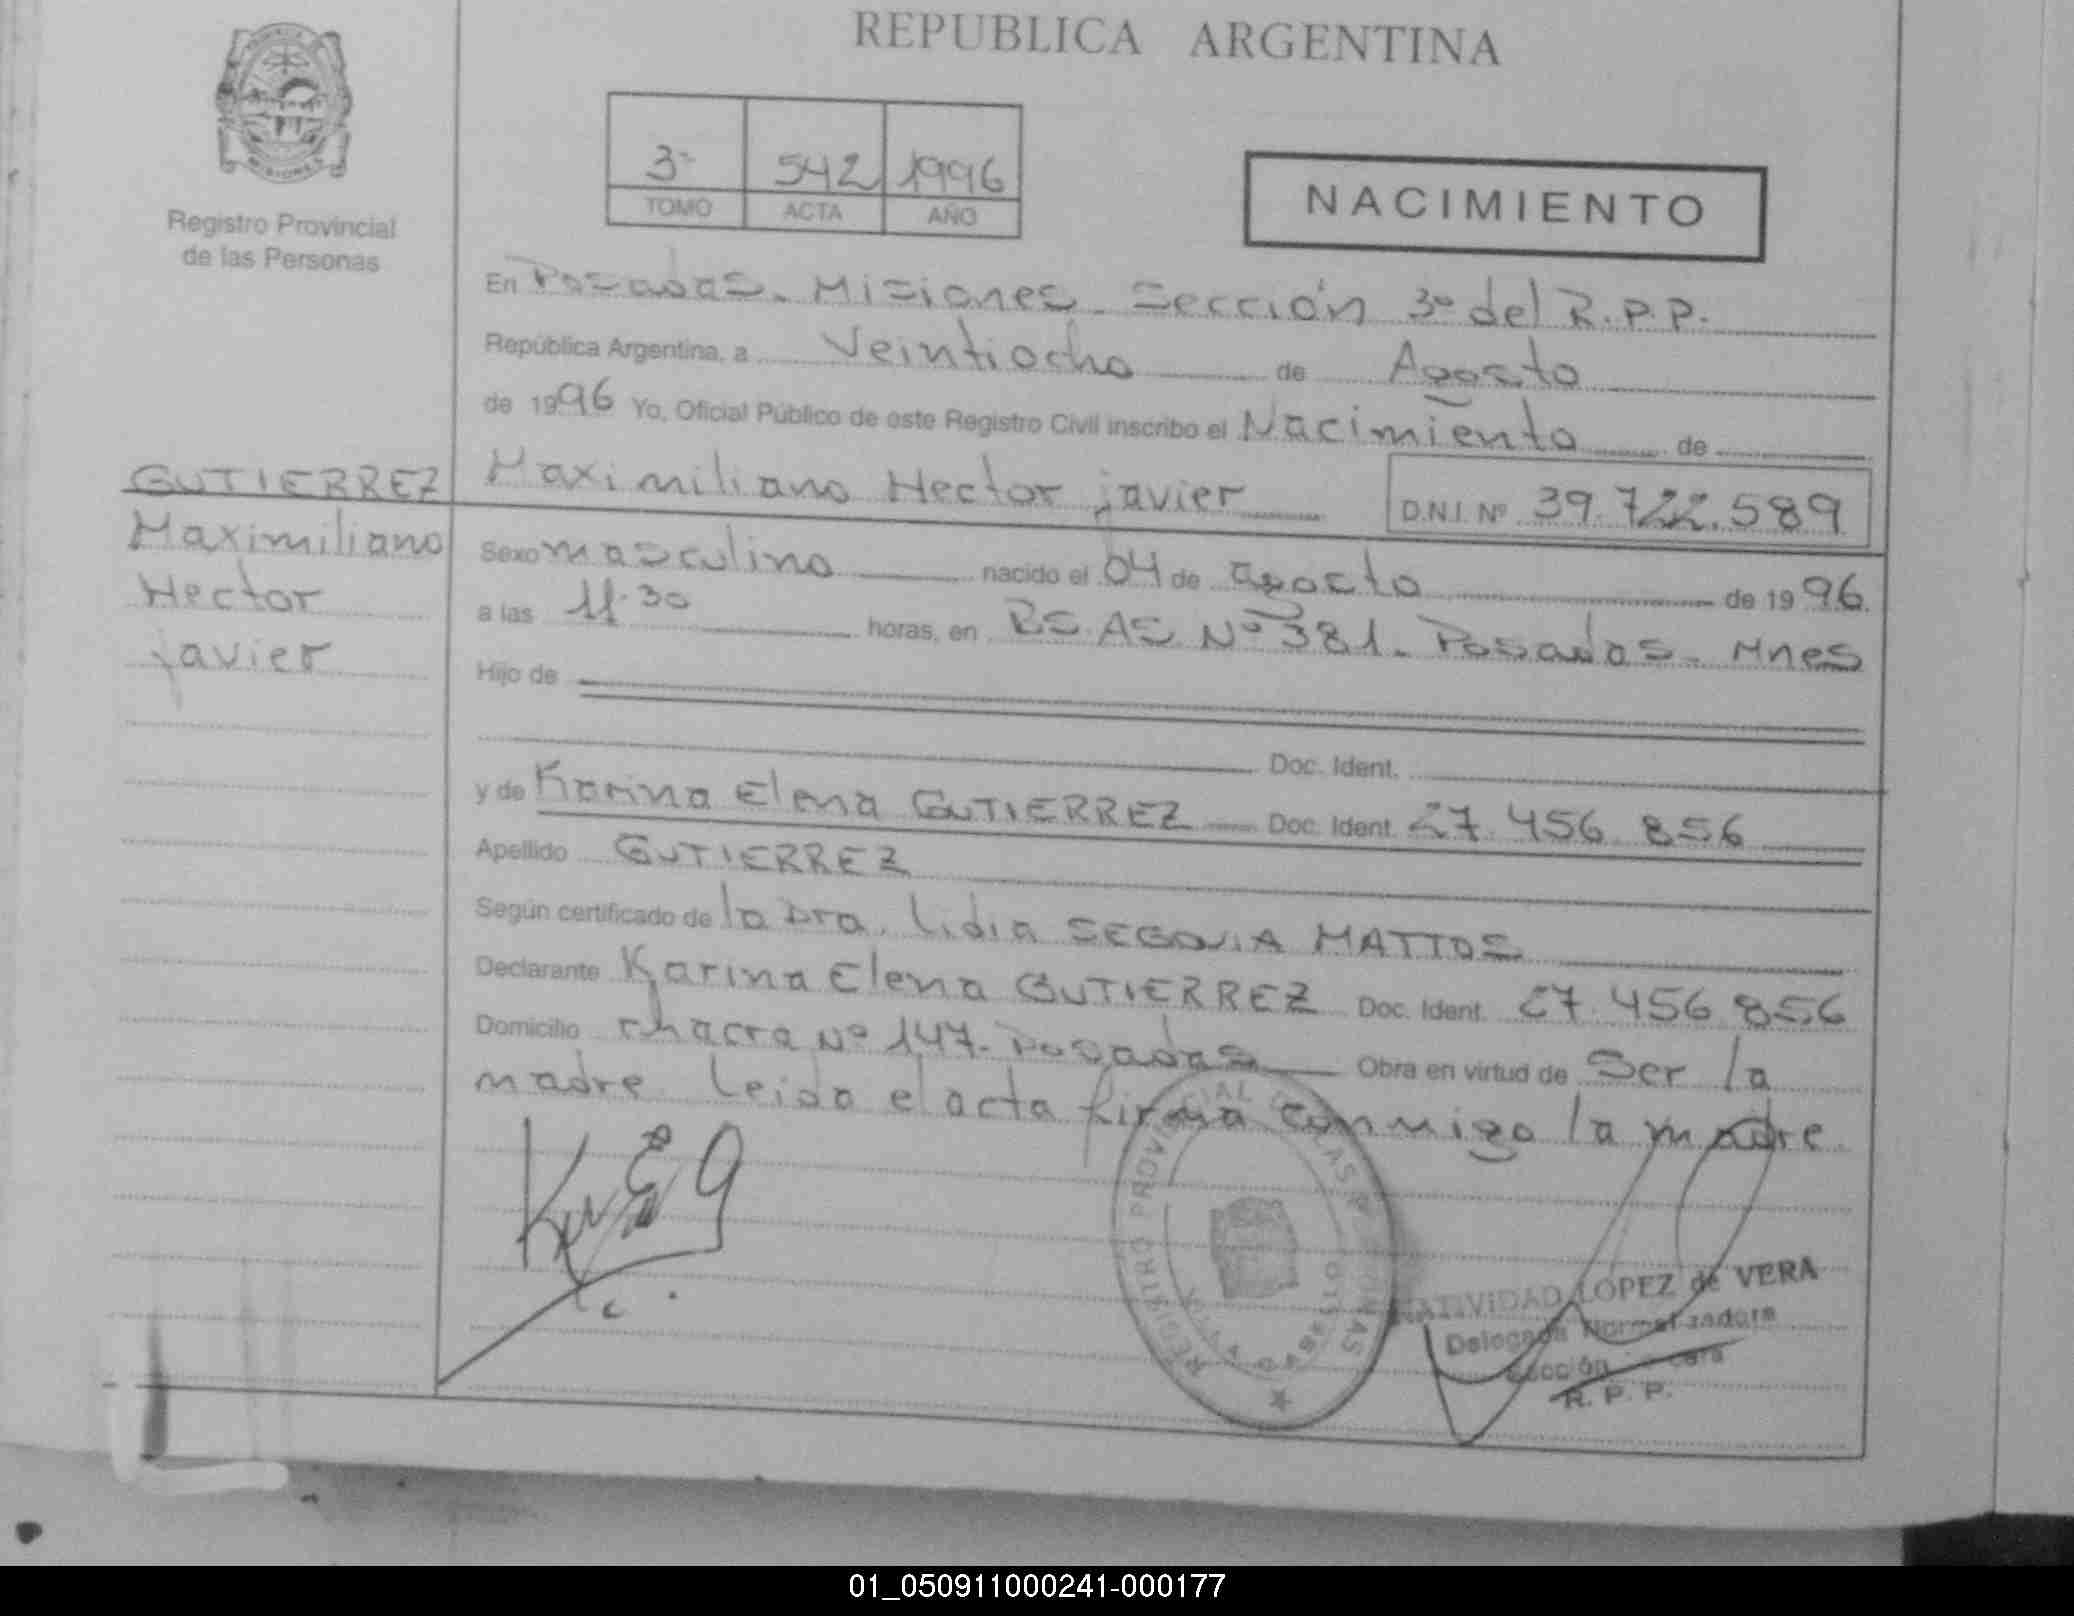 REPUBLICA ARGENTINA
MISIONES
Registro Provincial
de las Personas
3º 542 1996
TOMO ACTA AÑO
NACIMIENTO
En Posadas. Misiones. Sección 3º del R.P.P.
República Argentina, a Veintiocho de Agosto
de 1996 Yo, Oficial Público de este Registro Civil inscribo el Nacimiento de
GUTIERREZ
Maximiliano Hector javier D.N.I. Nº 39.722.589
Maximiliano
Hector
javier
Sexo masculino nacido el 04 de agosto de 1996.
a las 11.30 horas, en BS.AS Nº 381. Posadas. Mnes
Hijo de
Doc. Ident.
y de Karina Elena GUTIERREZ Doc. Ident. 27.456.856
Apellido GUTIERREZ
Según certificado de la Dra. Lidia SEGOVIA MATTOS
Declarante Karina Elena GUTIERREZ Doc. Ident. 27.456.856
Domicilio chacra Nº 147. Posadas Obra en virtud de Ser la
madre. Leida el acta firma conmigo la madre.
REGISTRO PROVINCIAL DE LAS PERSONAS
POSADAS
NATIVIDAD LOPEZ de VERA
Delegada Normalizadora
Sección
R. P. P.
01_050911000241-000177